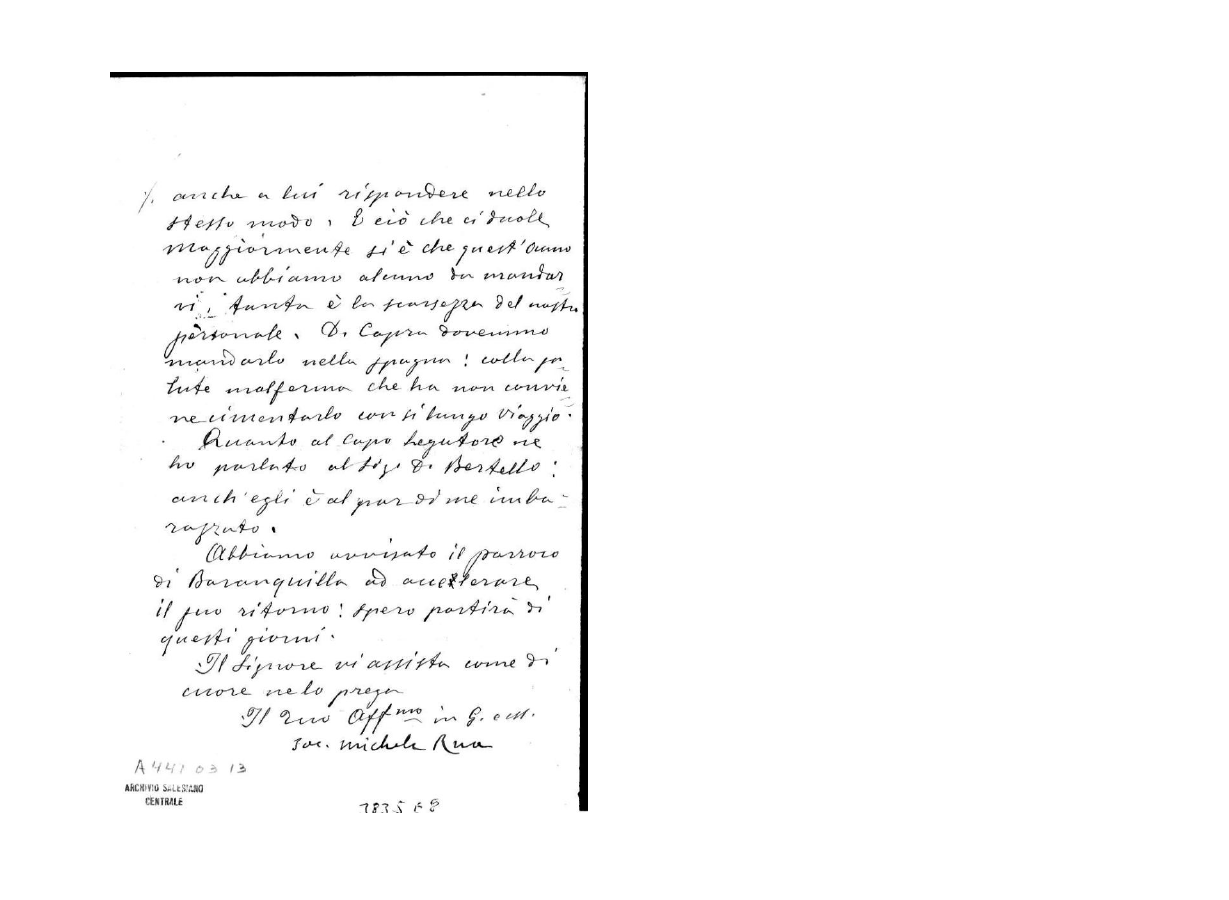 ./. anche a lui rispondere nello
stesso modo. E ciò che ci duole
maggiormente si è che quest'anno
non abbiamo alcuno da mandar
vi, tanta è la scarsezza del nostro
personale. D. Capra dovemmo
mandarlo nella Spagna: colla sa=
lute malferma che ha non convie=
ne cimentarlo con sì lungo viaggio.
Quanto al Capo legatore ne
ho parlato al Sig. D. Bertello:
anch'egli è al par di me imba=
razzato.
Abbiamo avvisato il parroco
di Baranquilla ad accelerare
il suo ritorno: spero partirà di
questi giorni.
Il Signore vi assista come di
cuore ne lo prega
Il Tuo Aff.mo in G. e M.
Sac. Michele Rua
A 441 03 13
ARCHIVIO SALESIANO
CENTRALE
3835 E 8